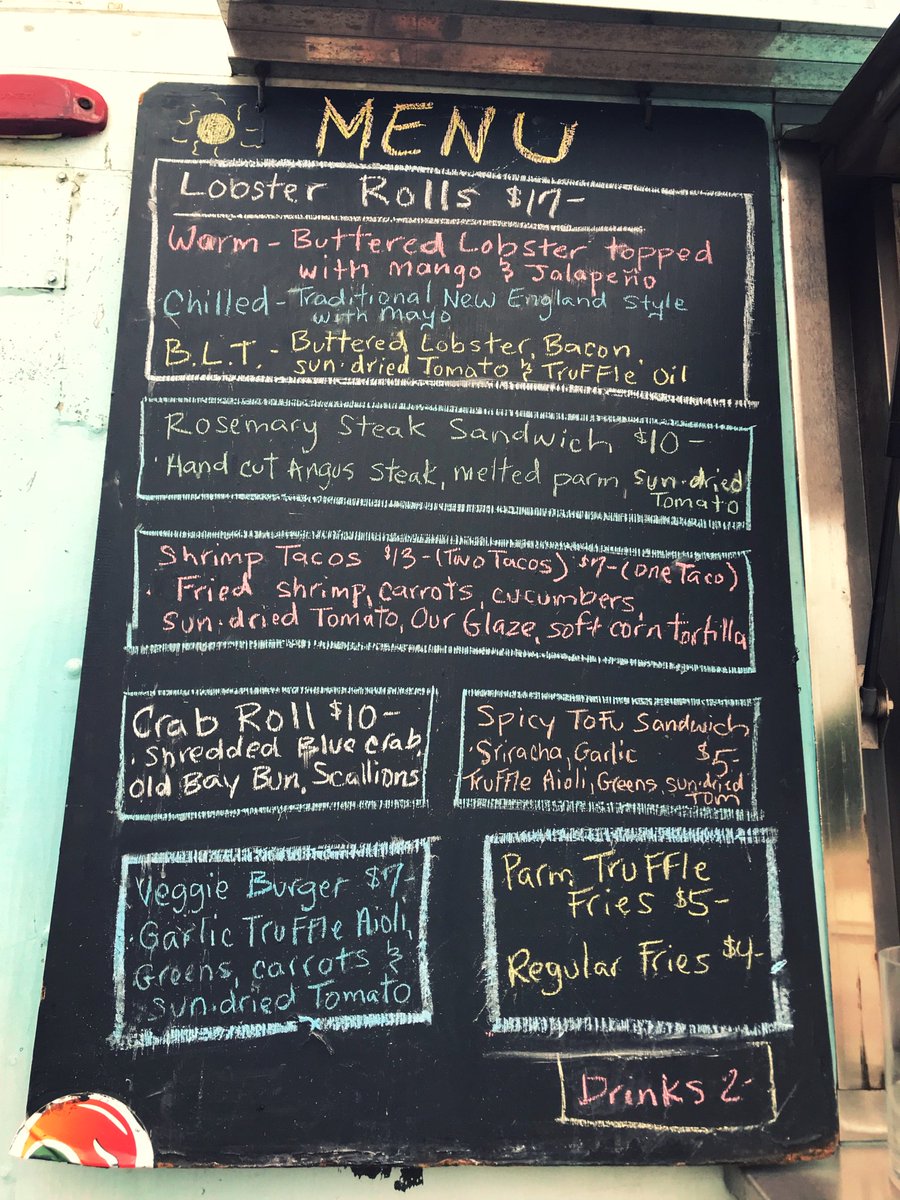 MENU
Lobster Rolls $17-
Warm - Buttered Lobster topped
with Mango & Jalapeño
Chilled - Traditional New England Style
with Mayo
B.L.T. - Buttered Lobster, Bacon,
sun·dried Tomato & Truffle Oil
Rosemary Steak Sandwich $10-
· Hand cut Angus Steak, melted parm, sun·dried
Tomato
Shrimp Tacos $13-(Two Tacos) $7-(One Taco)
· Fried shrimp, carrots, cucumbers,
sun·dried Tomato, Our Glaze, soft corn tortilla
Crab Roll $10-
· Shredded Blue Crab,
Old Bay Bun, Scallions
Spicy Tofu Sandwich
· Sriracha, Garlic $5-
Truffle Aioli, Greens, sun·dried
Tom
Veggie Burger $7-
· Garlic Truffle Aioli,
Greens, carrots &
sun·dried Tomato
Parm Truffle
Fries $5-
Regular Fries $4-
Drinks 2-